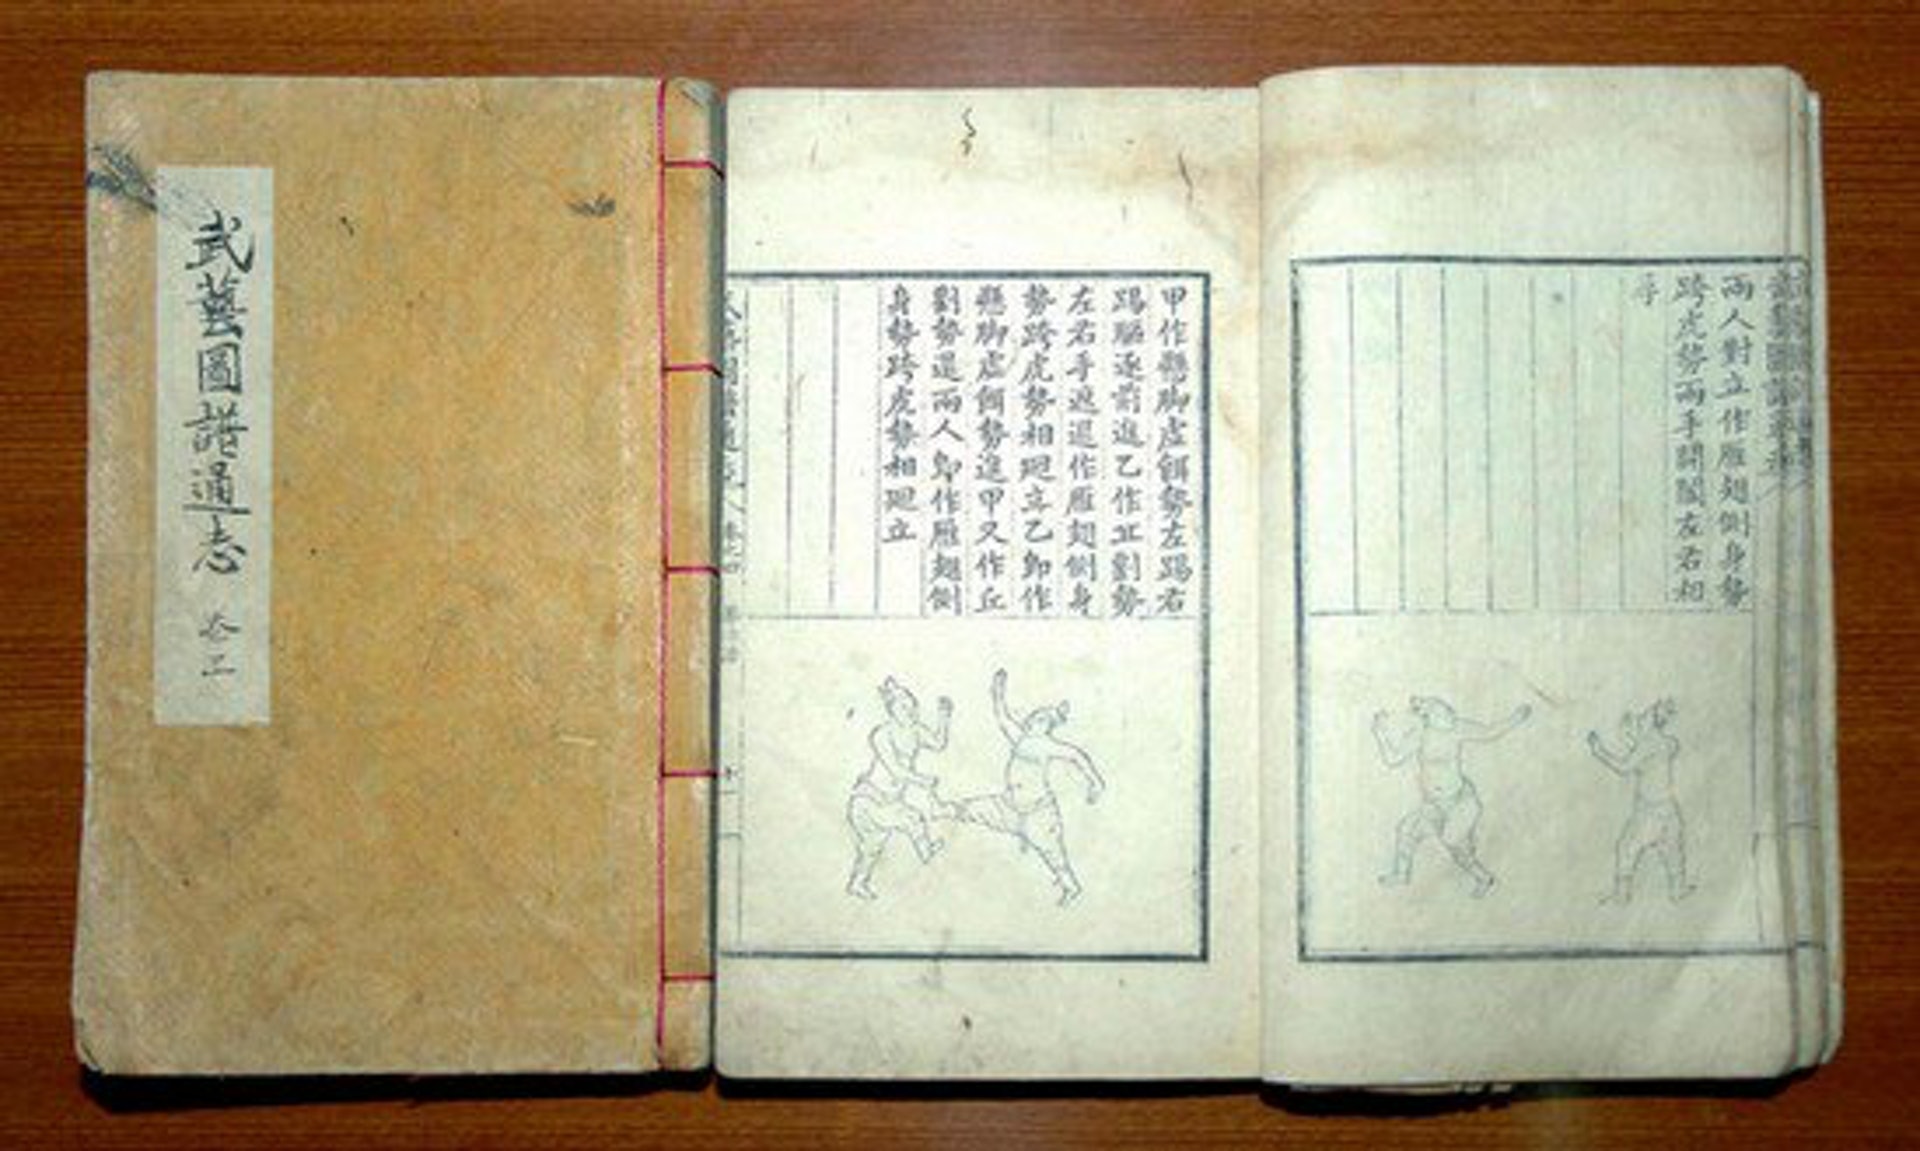 武藝圖譜通志
兩人對立作雁翅側身勢
跨虎勢兩手開闔左右相
尋
甲作懸脚虛餌勢左踢右
踢驅逐前進乙作丘劉勢
左右手遮退作雁翅側身
勢跨虎勢相廻立乙卽作
懸脚虛餌勢進甲又作丘
劉勢退兩人卽作雁翅側
身勢跨虎勢相廻立